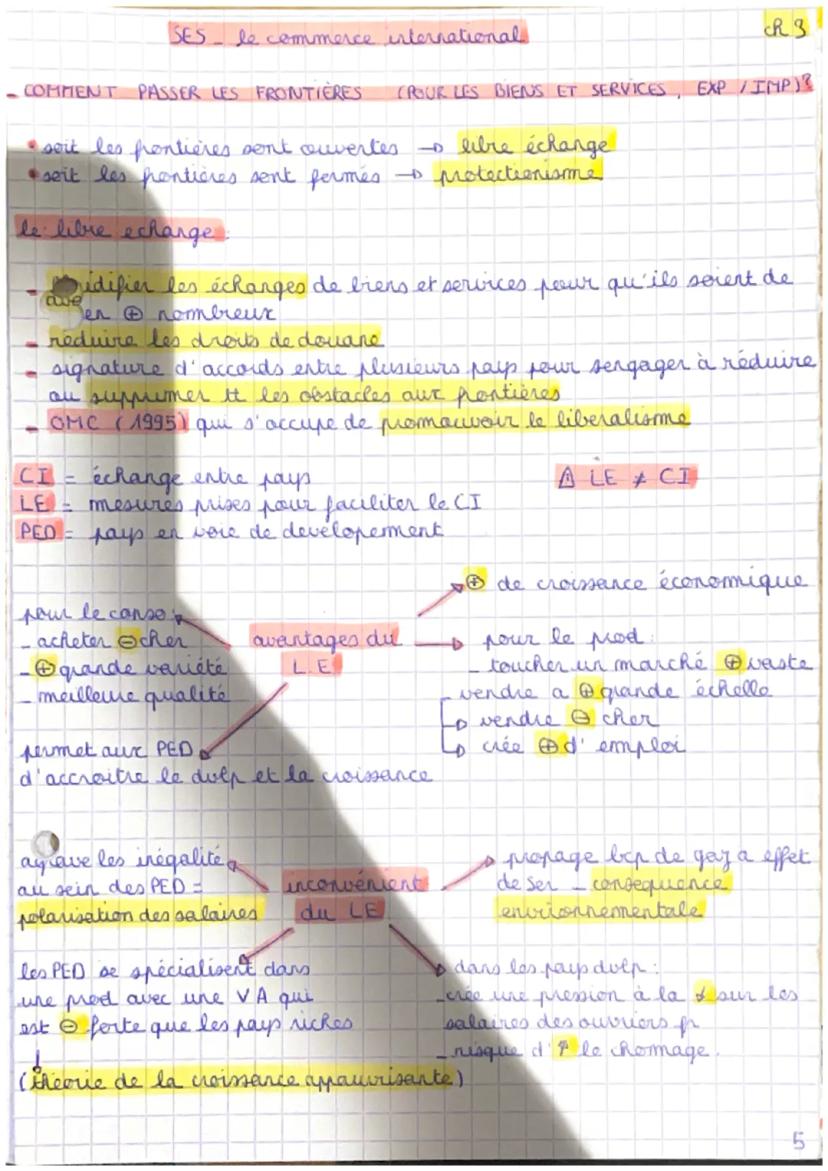 SES - le commerce international
ch 3
- COMMENT PASSER LES FRONTIÈRES (POUR LES BIENS ET SERVICES, EXP / IMP)?
• soit les frontières sont ouvertes → libre échange
• soit les frontières sont fermés → protectionisme
le libre echange :
- idifier les échanges de biens et services pour qu'ils soient de
en ⊕ nombreux
- réduire les droits de douane
- signature d'accords entre plusieurs pays pour sengager à réduire
ou supprimer tt les obstacles aux frontières
- OMC (1995) qui s'occupe de promouvoir le liberalisme
CI = échange entre pays
⚠ LE ≠ CI
LE = mesures prises pour faciliter le CI
PED = pays en voie de developement
⊕ de croissance économique
pour le conso :
- acheter ⊖ cher
- ⊕ grande variété
- meilleure qualité
avantages du
L.E
pour le prod :
- toucher un marché ⊕ vaste
- vendre a ⊕ grande échelle
→ vendre ⊖ cher
→ crée ⊕ d'emploi
permet aux PED
d'accroitre le dvlp et la croissance
aggrave les inégalité
au sein des PED =
polarisation des salaires
inconvénient
du LE
propage bcp de gaz a effet
de ser - consequence
environnementale
les PED se spécialisent dans
une prod avec une VA qui
est ⊖ forte que les pays riches
↓
(théorie de la croissance appauvrisante)
dans les pays dvlp :
- crée une pression à la ↓ sur les
salaires des ouvriers
- risque d'↑ le chomage.
5